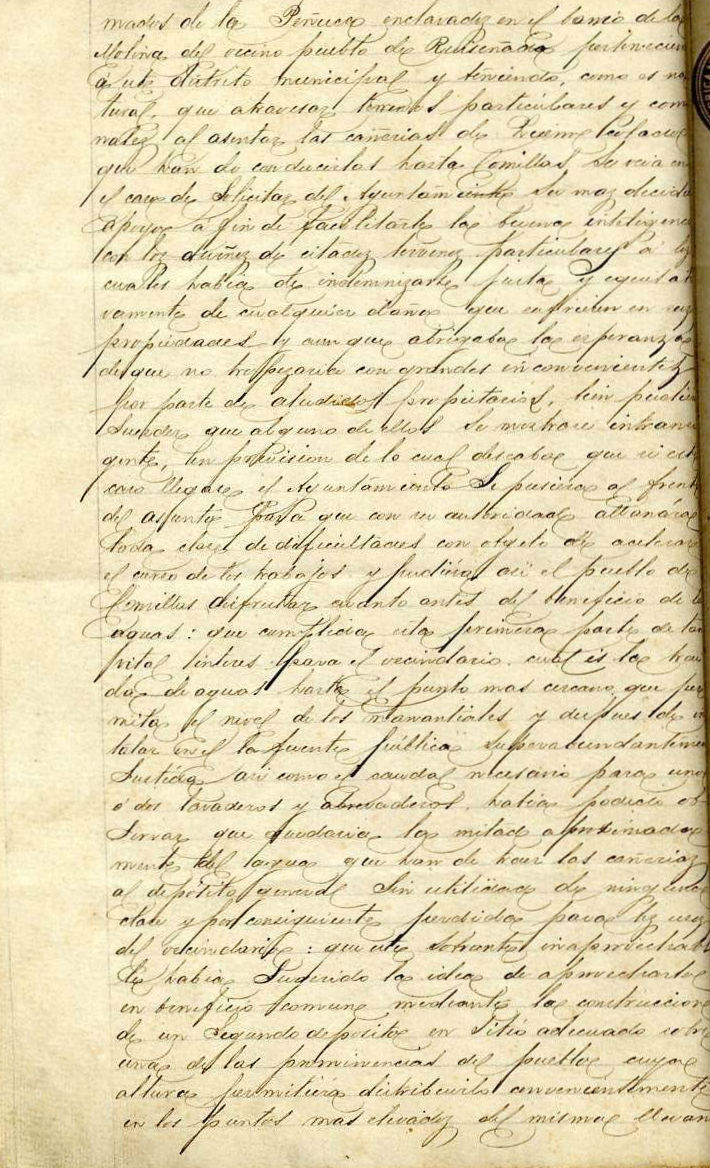 mados de la Peñuca enclavados en el barrio de la
Molina del vecino pueblo de Ruiseñada pertenecien
a este distrito municipal y teniendo, como es na
tural, que atravesar terrenos particulares y comu
nales al asentar las cañerias de
que han de conducirlas hasta Comillas, se veia en
el caso de solicitar del Ayuntamiento su mas decidido
apoyo a fin de facilitarle la buena inteligencia
con los dueños de citados terrenos particulares a los
cuales habia de indemnizarse justa y equitati
vamente de cualquier daño que sufriesen en sus
propiedades y aun que abrigaba la esperanza
de que no tropezaria con grandes inconvenientes
por parte de aludidos propietarios, bien pudiera
suceder que alguno de ellos se mostrare intransi
gente, en prevision de lo cual deseaba que si este
caso llegare el Ayuntamiento se pusiera al frente
del asunto para que con su autoridad allanára
toda clase de dificultades con objeto de acelerar
el curso de los trabajos y pudiéra asi el pueblo de
Comillas disfrutar cuanto antes del beneficio de las
aguas: que cumplida esta primera parte de ca
pital interes para el vecindario, cual es la trai
da de aguas hasta el punto mas cercano que per
mita el nivel de los manantiales y despues de ins
talar en el la fuente pública superabundantemente
surtida asi como el caudal necesario para uno
ó dos lavaderos y abrevaderos, habia podido ob
servar que quedaria la mitad aproximada
mente del agua que han de traer las cañerias
al depósito general sin utilidad de ninguna
clase y por consiguiente perdida para los usos
del vecindario: que este sobrante inaprovechable
le habia sugerido la idea de aprovecharlo
en beneficio comun mediante la construccion
de un segundo deposito en sitio adecuado sobre
una de las prominencias del pueblo cuya
altura permitiera distribuirlo convenientemente
en los puntos mas elevados del mismo llevan